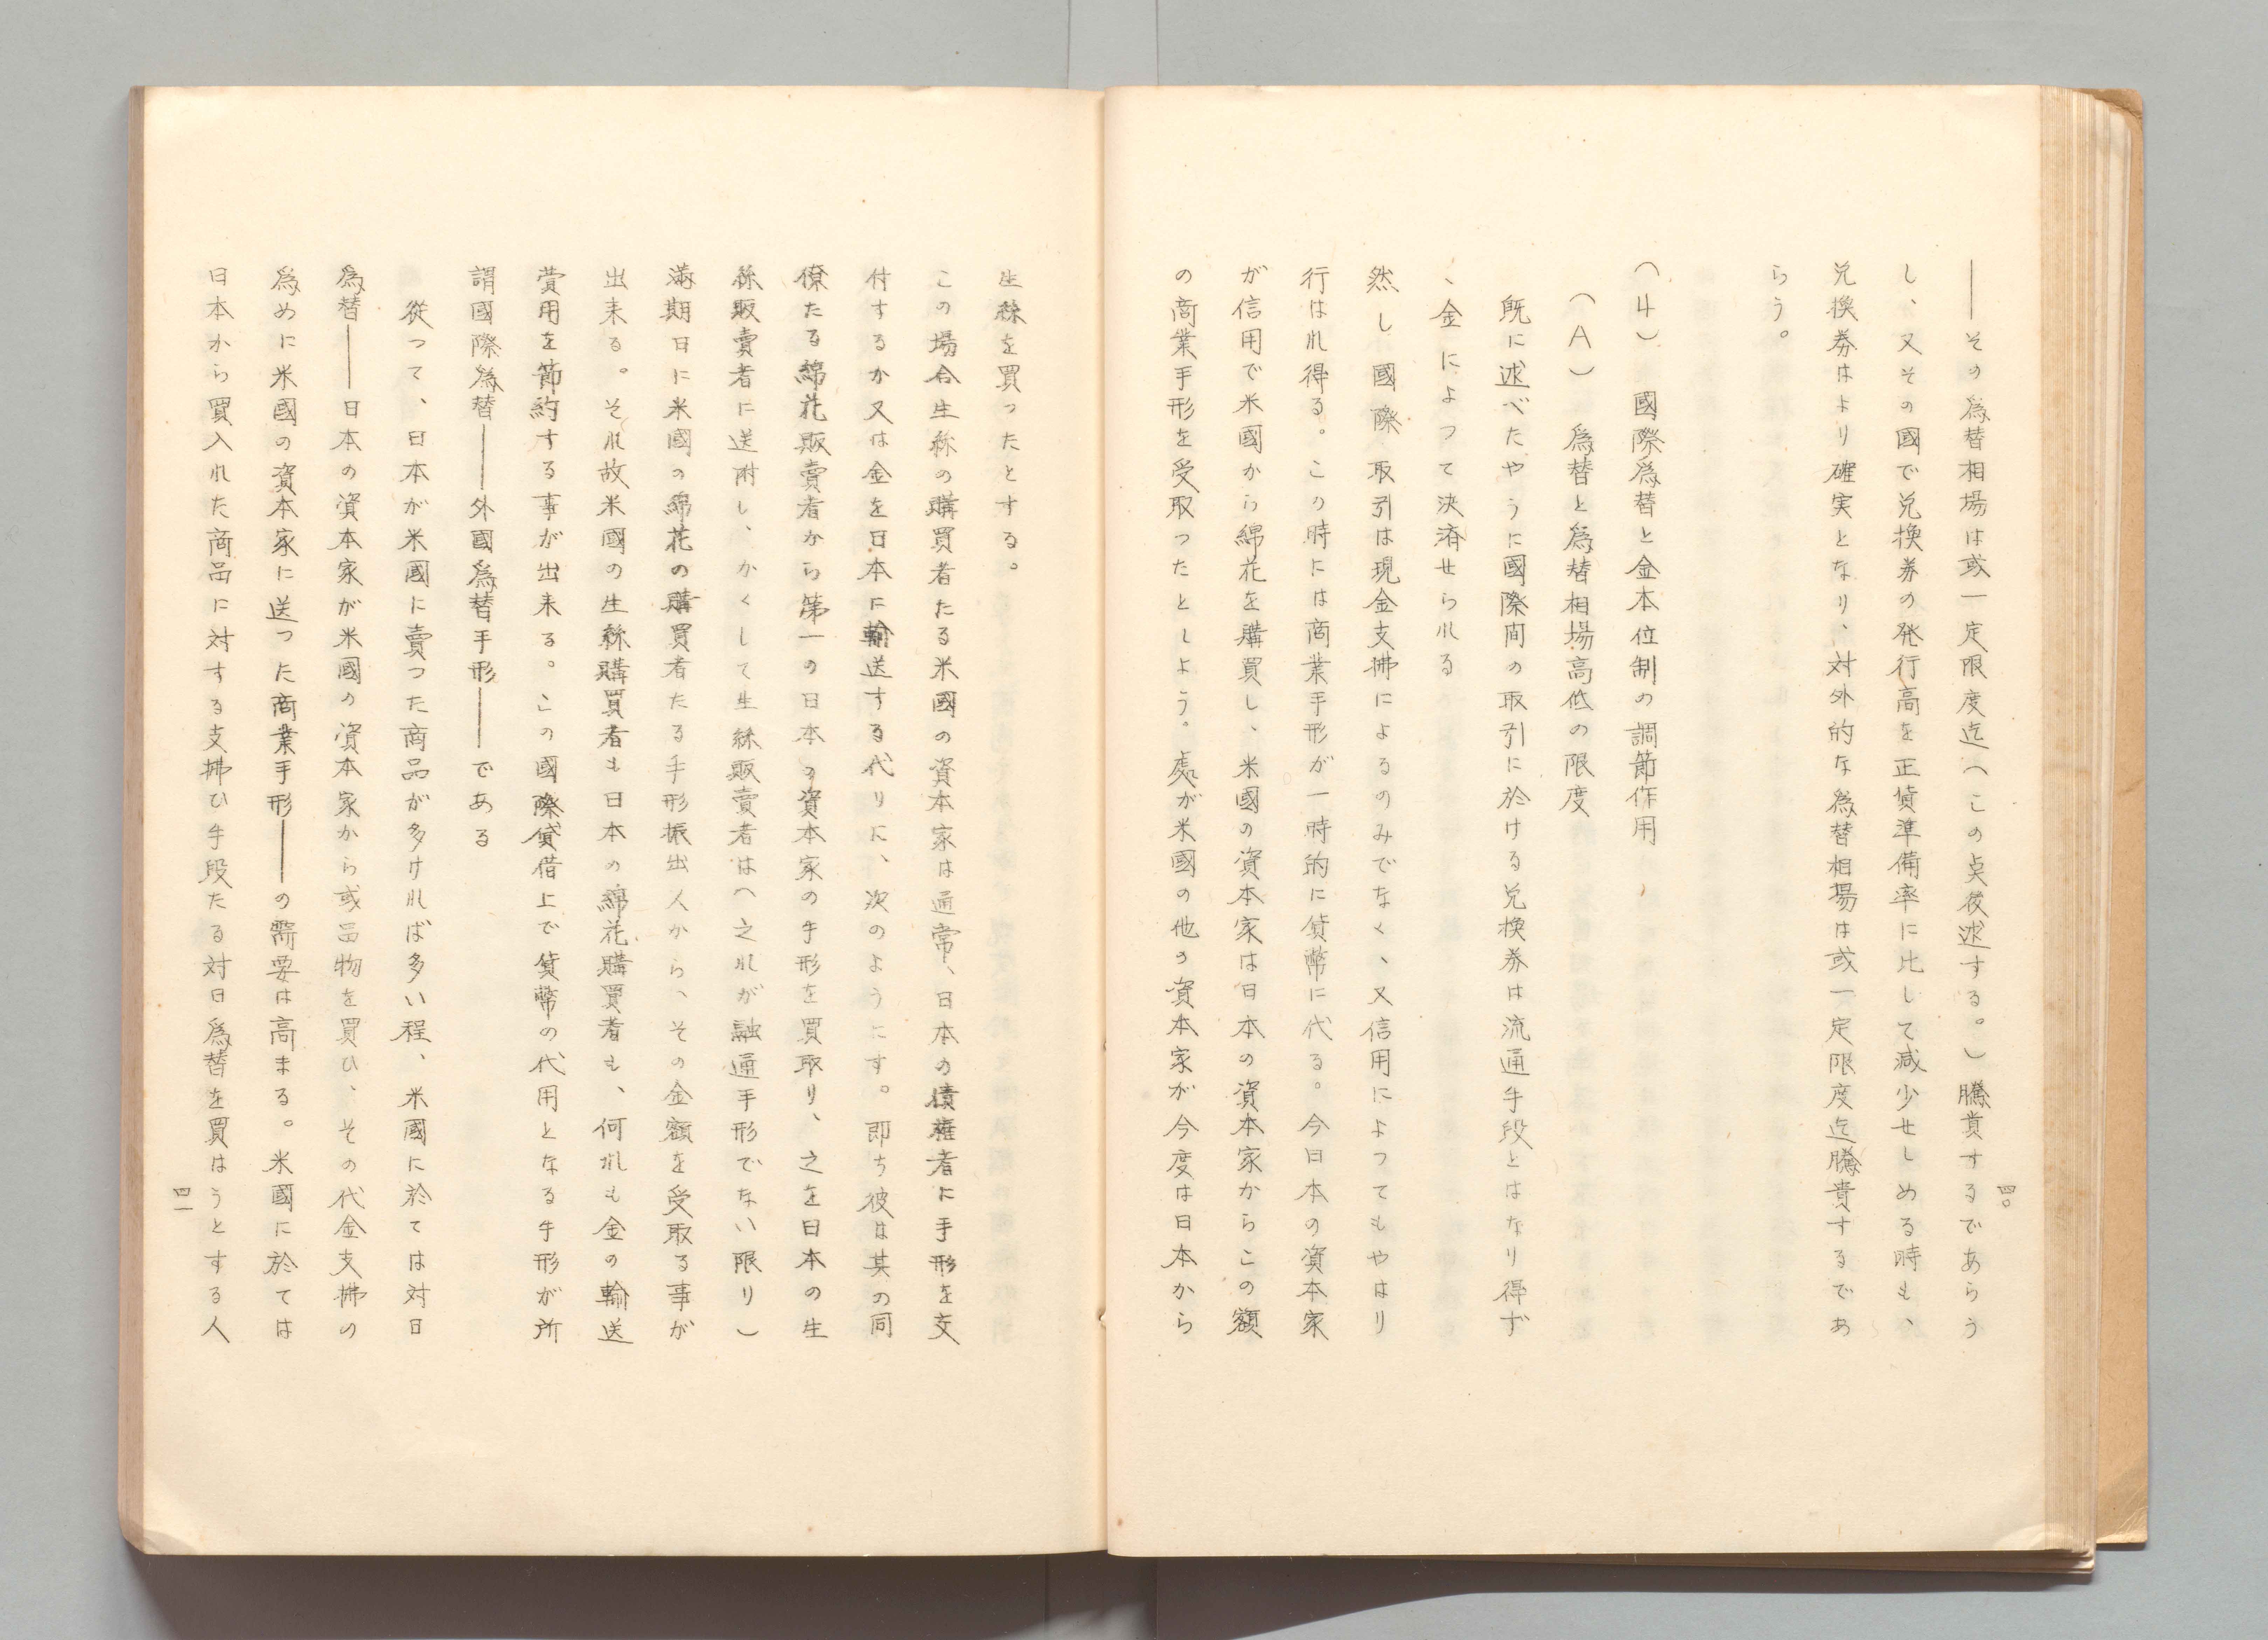 ――その爲替相場は或一定限度迄（この点後述する。）騰貴するであらう
し、又その國で兌換券の発行高を正貨準備率に比して減少せしめる時も、
兌換券はより確実となり、対外的な爲替相場は或一定限度迄騰貴するであ
らう。
（４）　國際爲替と金本位制の調節作用
（Ａ）　爲替と爲替相場高低の限度
既に述べたやうに國際間の取引に於ける兌換券は流通手段とはなり得ず
、金によつて決済せられる
然し國際取引は現金支拂によるのみでなく、又信用によつてもやはり
行はれ得る。この時には商業手形が一時的に貨幣に代る。今日本の資本家
が信用で米國から綿花を購買し、米國の資本家は日本の資本家からこの額
の商業手形を受取つたとしよう。処が米國の他の資本家が今度は日本から
四〇
生絲を買つたとする。
この場合生絲の購買者たる米國の資本家は通常、日本の債権者に手形を支
付するか又は金を日本に輸送する代りに、次のようにす。即ち彼は其の同
僚たる綿花販賣者から第一の日本の資本家の手形を買取り、之を日本の生
絲販賣者に送附し、かくして生絲販賣者は（之れが融通手形でない限り）
満期日に米國の綿花の購買者たる手形振出人から、その金額を受取る事が
出来る。それ故米國の生絲購買者も日本の綿花購買者も、何れも金の輸送
費用を節約する事が出来る。この國際貸借上で貨幣の代用となる手形が所
謂國際爲替――外國爲替手形――である
從つて、日本が米國に賣つた商品が多ければ多い程、米國に於ては対日
爲替――日本の資本家が米國の資本家から或品物を買ひ、その代金支拂の
爲めに米國の資本家に送つた商業手形――の需要は高まる。米國に於ては
日本から買入れた商品に対する支拂ひ手段たる対日爲替を買はうとする人
四一